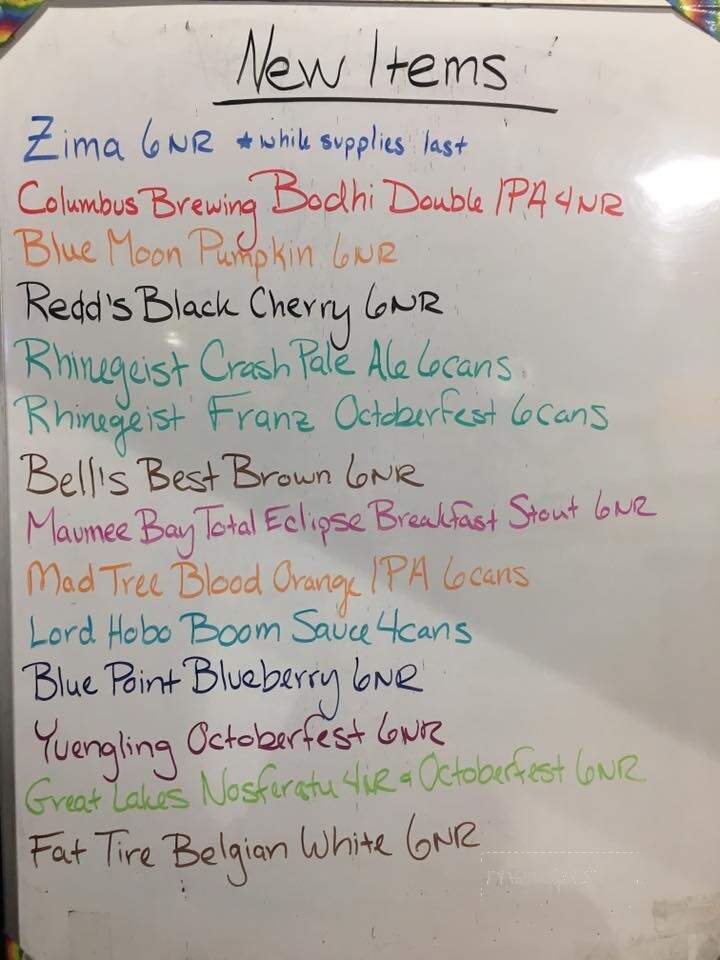 New Items
Zima 6NR *while supplies last
Columbus Brewing Bodhi Double IPA 4NR
Blue Moon Pumpkin 6NR
Redd's Black Cherry 6NR
Rhinegeist Crash Pale Ale 6cans
Rhinegeist Franz Octoberfest 6cans
Bell's Best Brown 6NR
Maumee Bay Total Eclipse Breakfast Stout 6NR
Mad Tree Blood Orange IPA 6cans
Lord Hobo Boom Sauce 4cans
Blue Point Blueberry 6NR
Yuengling Octoberfest 6NR
Great Lakes Nosferatu 4NR & Octoberfest 6NR
Fat Tire Belgian White 6NR